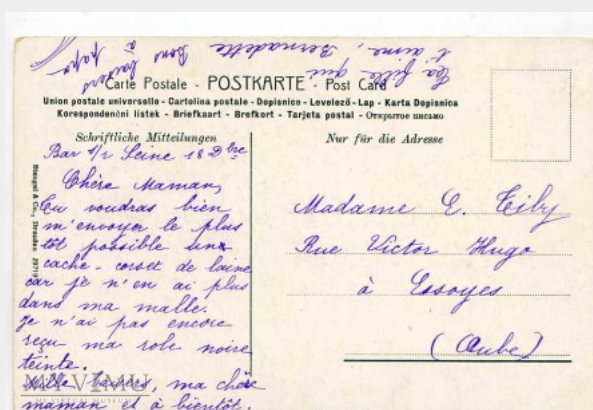 Ta fille qui
t'aime, Bernadette
Bons baisers
à papa
Carte Postale - POSTKARTE - Post Card
Union postale universelle - Cartolina postale - Dopisnice - Levelező-Lap - Karta Dopisnica
Korespondenční lístek - Briefkaart - Brefkort - Tarjeta postal - Открытое письмо
Schriftliche Mitteilungen
Nur für die Adresse
Bar s/r Seine 18 Dbre
Chère Maman,
Tu voudras bien
m'envoyer le plus
tôt possible un
cache-corset de laine
car je n'en ai plus
dans ma malle.
Je n'ai pas encore
reçu ma robe noire
teinte.
Mille baisers, ma chère
maman et à bientôt.
Stengel & Co., Dresden
Madame E. Tiby
Rue Victor Hugo
à Essoyes
(Aube)
MY VIMU
MY VIRTUAL MUSEUM